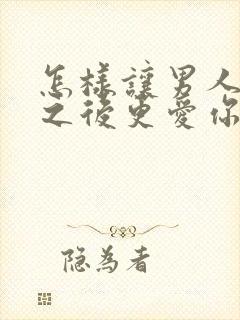 怎樣讓男人
之後更愛你
隐為者